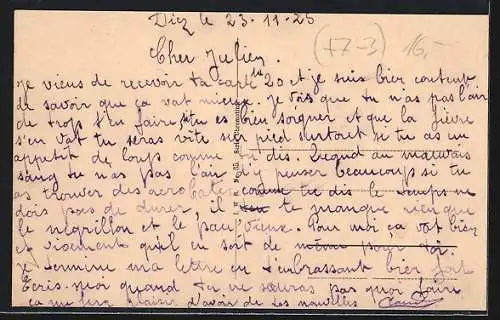 Diez le 23-11-25
(+7-3) 16,-
Cher Julien
Je viens de recevoir ta carte du 20 et je suis bien content
de savoir que ça vat mieux. Je vois que tu n'as pas l'air
de trop t'en faire, tu es bien soigner et que la fièvre
s'en vat tu seras vite sur pied surtout si tu as un
appétit de loup comme tu dis. Quand au mauvais
sang tu n'as pas l'air d'y penser beaucoup si tu
as trouver des acrobates comme tu dis le temps ne
dois pas de durer, il te manque rien que
le négrillon et le pauv' vieux. Pour moi ça vat bien
et vivement qu'il en soit de même pour toi.
Je termine ma lettre en t'embrassant bien fort
Ecris-moi quand tu ne sauras pas quoi faire
ça me fera plaisir d'avoir de tes nouvelles